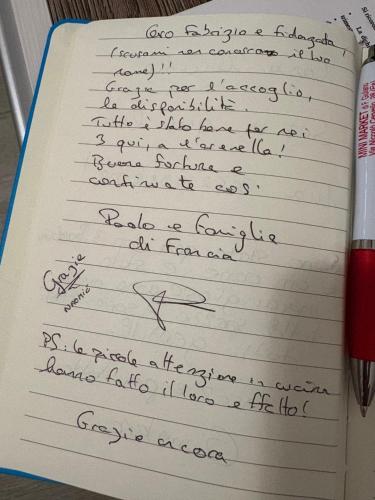 Caro Fabrizio e fidanzata,
(scusami non conoscono il tuo
nome)!!
Grazie per l'accoglio,
le disponibilità.
Tutto è stato bene per noi
3 qui, a l'arenella!
Buona fortuna e
continuate così
Paolo e famiglia
di Francia
Grazie
PS: le piccole attenzione in cucina
hanno fatto il loro effetto!
Grazie ancora
MINI MARKET di F. Giuliano